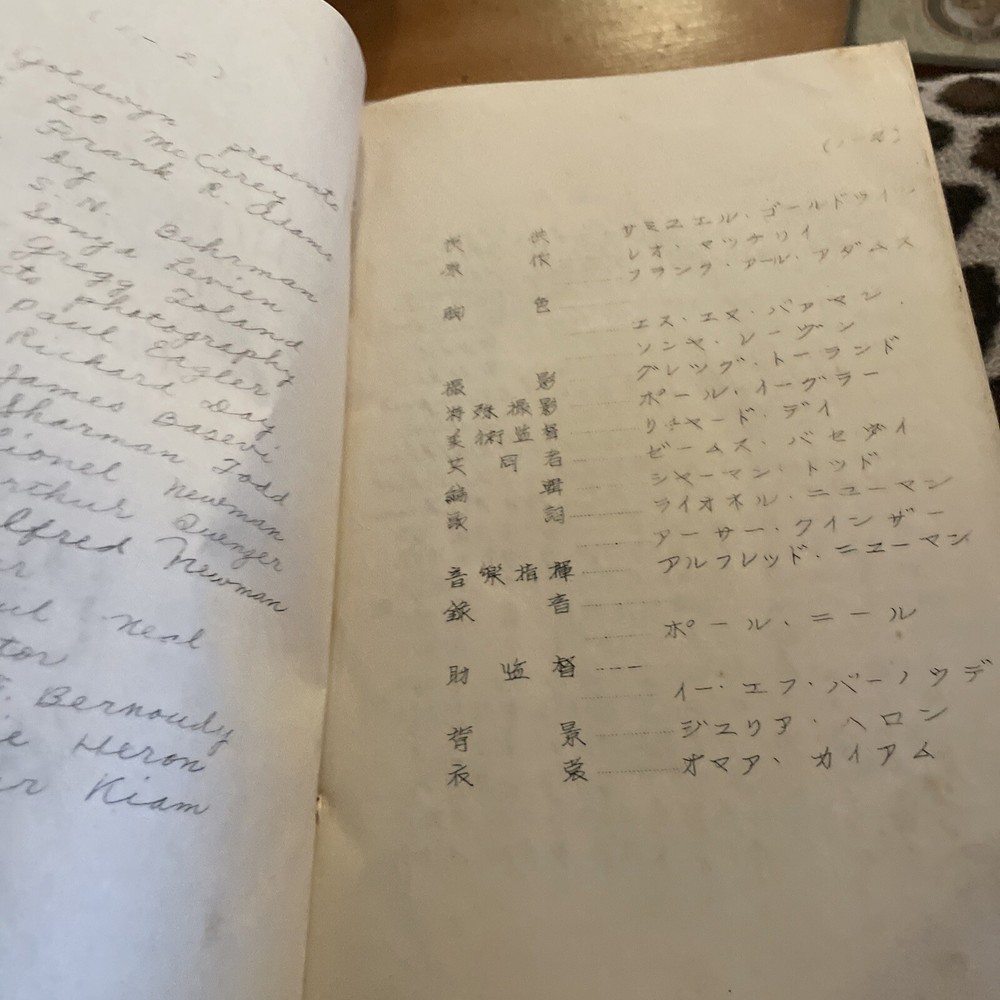 (1-2)
Goldwyn presents
Leo McCarey
Frank R. Adams
by
S. N. Behrman
Sonya Levien
Gregg Toland
to photography
Paul Eagler
Richard Day
James Basevi
Sherman Todd
Lionel Newman
Arthur Quenzer
Alfred Newman
er
ul Neal
tor
F. Bernoudy
ie Heron
er Kiam
提 供 サミユエル・ゴールドウイン
レオ・マツケリイ
原 作 フランク・アール・アダムス
脚 色
エス・エヌ・バアマン
ソンヤ・レーヴン
撮 影 グレッグ・トーランド
特殊撮影 ポール・イーグラー
美術監督 リチャード・デイ
共同者 ゼームス・バセヴイ
編 輯 シャーマン・トッド
歌 詞 ライオネル・ニューマン
アーサー・クインザー
音楽指揮 アルフレッド・ニューマン
録 音
ポール・ニール
財監督
イー・エフ・バーノウデ
背 景 ジユリア・ヘロン
衣 裳 オマア・カイアム